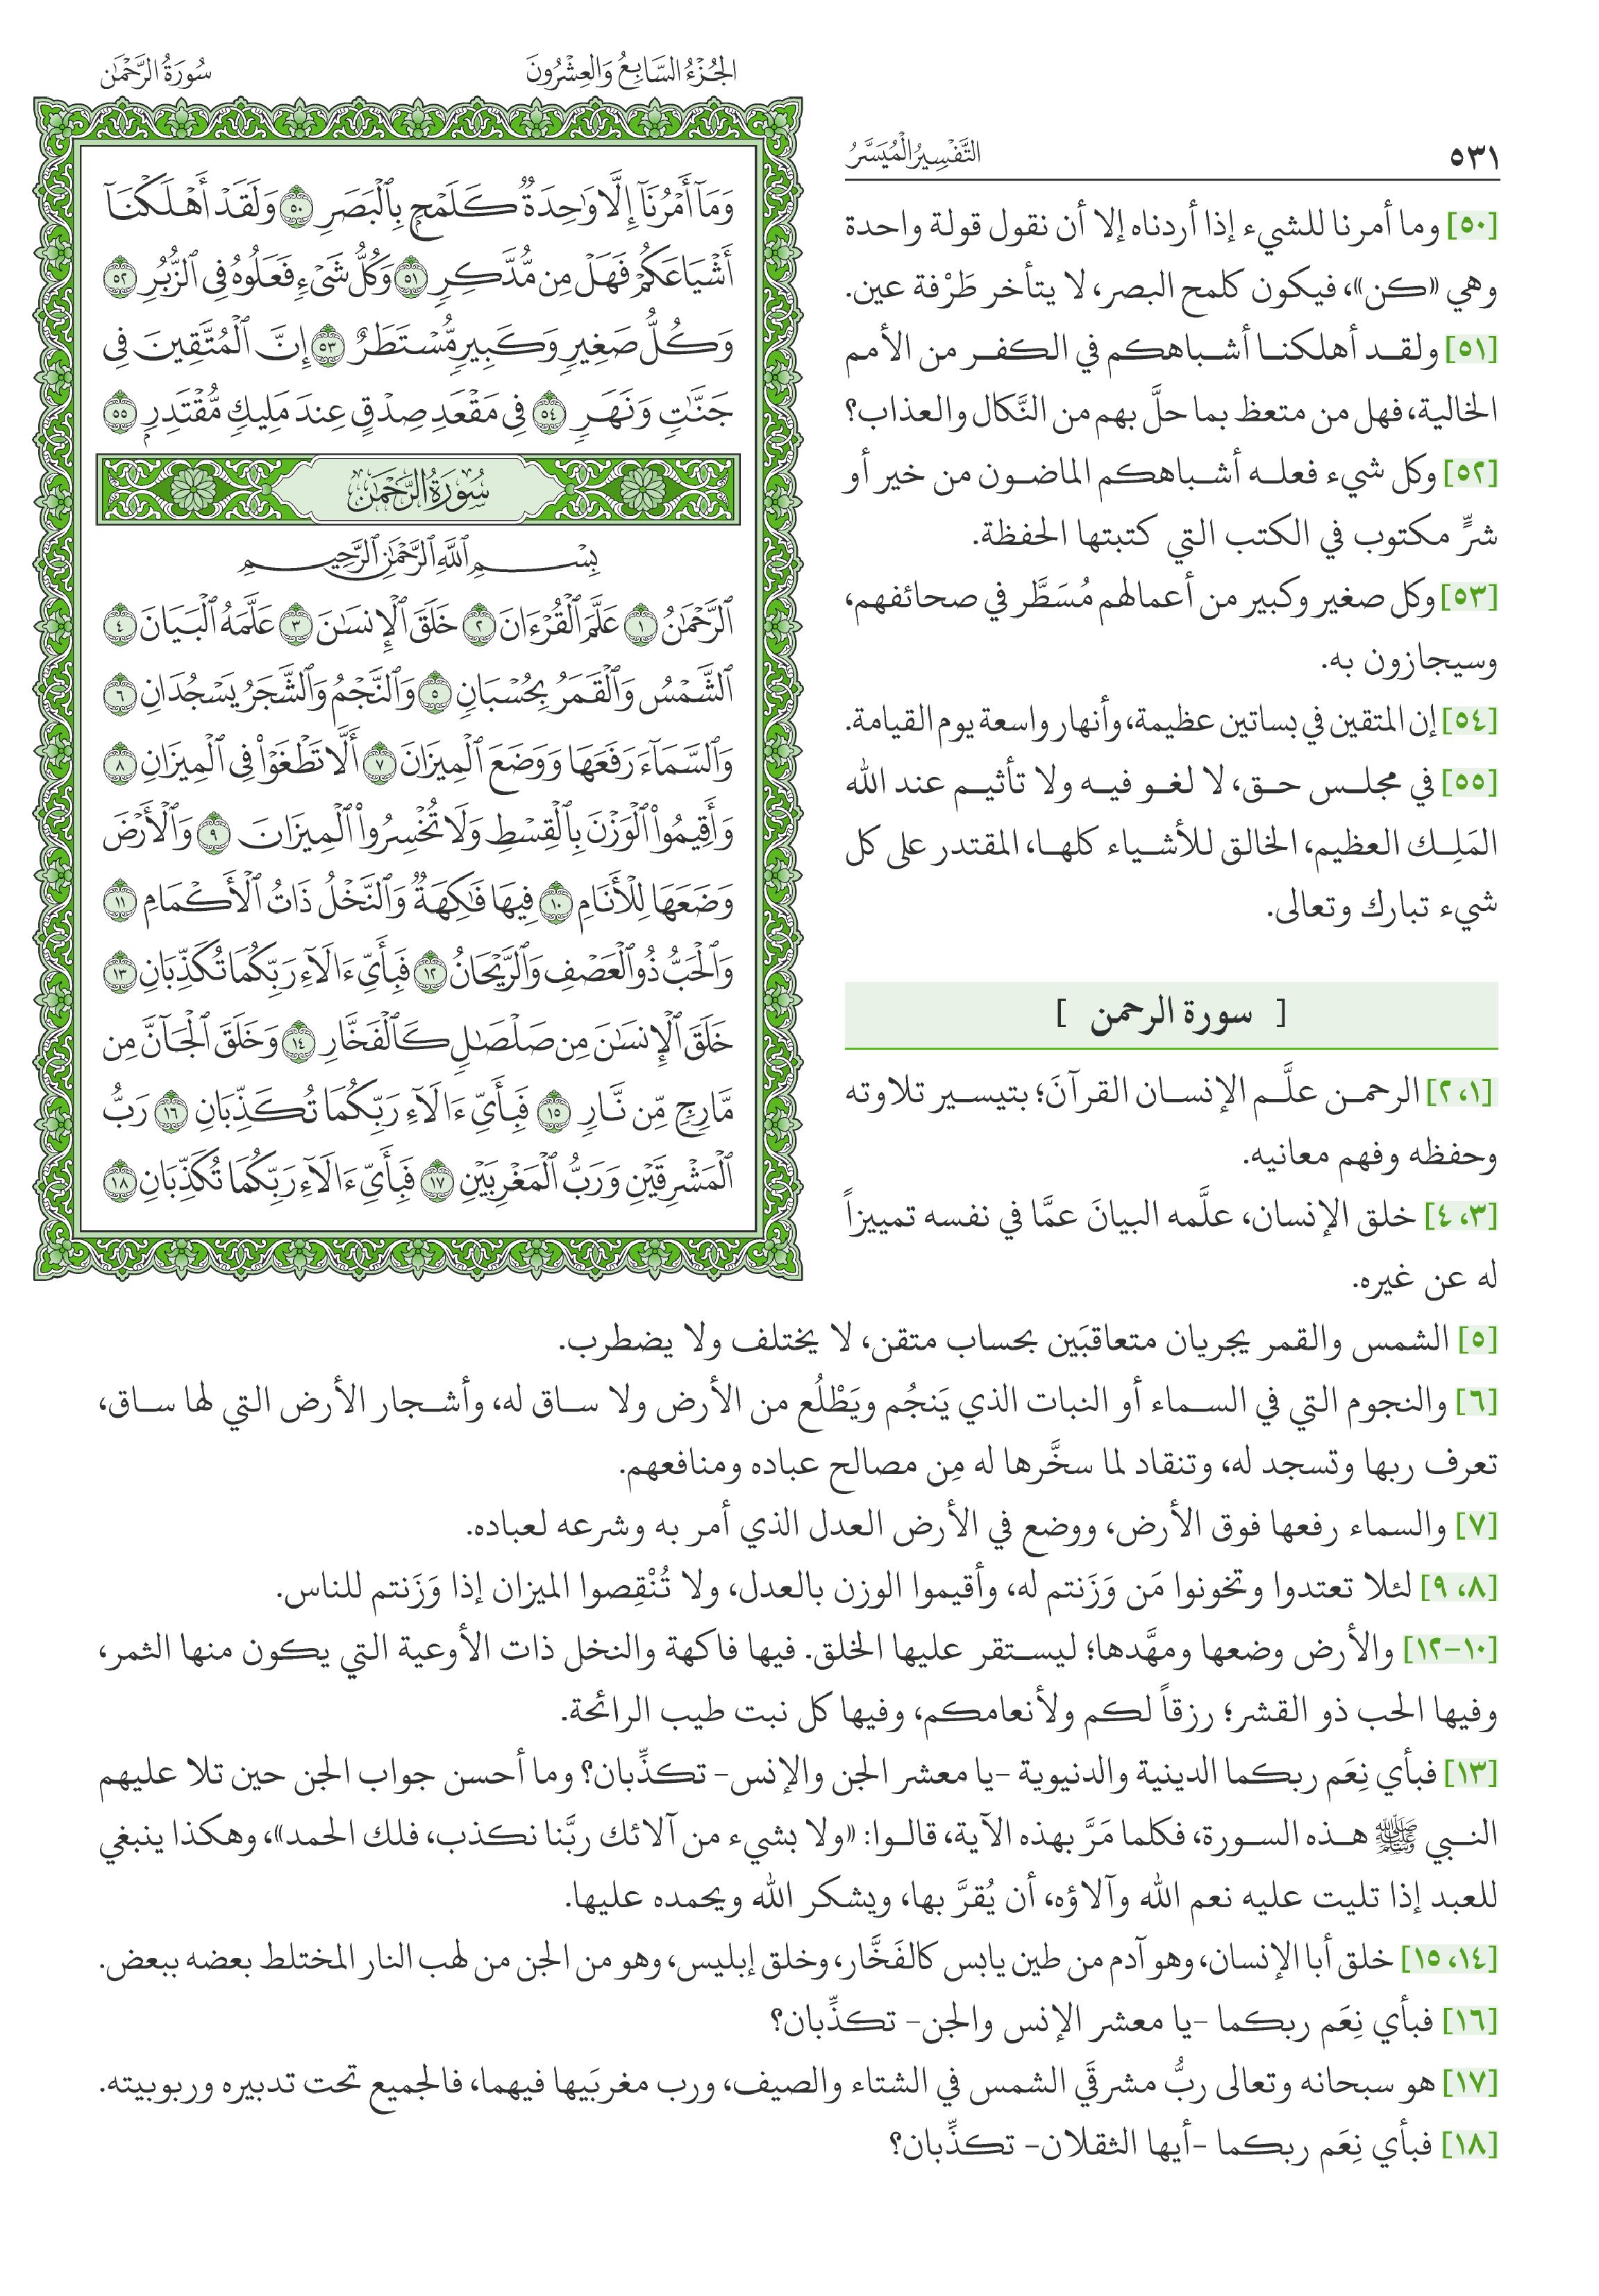 الجُزْءُ السَّابِعُ وَالعِشْرُونَ
سُورَةُ الرَّحْمَٰن
وَمَآ أَمْرُنَآ إِلَّا وَٰحِدَةٌ كَلَمْحِۭ بِٱلْبَصَرِ ٥٠ وَلَقَدْ أَهْلَكْنَآ
أَشْيَاعَكُمْ فَهَلْ مِن مُّدَّكِرٍ ٥١ وَكُلُّ شَىْءٍ فَعَلُوهُ فِى ٱلزُّبُرِ ٥٢
وَكُلُّ صَغِيرٍ وَكَبِيرٍ مُّسْتَطَرٌ ٥٣ إِنَّ ٱلْمُتَّقِينَ فِى
جَنَّٰتٍ وَنَهَرٍ ٥٤ فِى مَقْعَدِ صِدْقٍ عِندَ مَلِيكٍ مُّقْتَدِرٍۭ ٥٥
سُورَةُ الرَّحْمَٰن
بِسْمِ ٱللَّهِ ٱلرَّحْمَٰنِ ٱلرَّحِيمِ
ٱلرَّحْمَٰنُ ١ عَلَّمَ ٱلْقُرْءَانَ ٢ خَلَقَ ٱلْإِنسَٰنَ ٣ عَلَّمَهُ ٱلْبَيَانَ ٤
ٱلشَّمْسُ وَٱلْقَمَرُ بِحُسْبَانٍ ٥ وَٱلنَّجْمُ وَٱلشَّجَرُ يَسْجُدَانِ ٦
وَٱلسَّمَآءَ رَفَعَهَا وَوَضَعَ ٱلْمِيزَانَ ٧ أَلَّا تَطْغَوْا۟ فِى ٱلْمِيزَانِ ٨
وَأَقِيمُوا۟ ٱلْوَزْنَ بِٱلْقِسْطِ وَلَا تُخْسِرُوا۟ ٱلْمِيزَانَ ٩ وَٱلْأَرْضَ
وَضَعَهَا لِلْأَنَامِ ١٠ فِيهَا فَٰكِهَةٌ وَٱلنَّخْلُ ذَاتُ ٱلْأَكْمَامِ ١١
وَٱلْحَبُّ ذُو ٱلْعَصْفِ وَٱلرَّيْحَانُ ١٢ فَبِأَىِّ ءَالَآءِ رَبِّكُمَا تُكَذِّبَانِ ١٣
خَلَقَ ٱلْإِنسَٰنَ مِن صَلْصَٰلٍ كَٱلْفَخَّارِ ١٤ وَخَلَقَ ٱلْجَآنَّ مِن
مَّارِجٍ مِّن نَّارٍ ١٥ فَبِأَىِّ ءَالَآءِ رَبِّكُمَا تُكَذِّبَانِ ١٦ رَبُّ
ٱلْمَشْرِقَيْنِ وَرَبُّ ٱلْمَغْرِبَيْنِ ١٧ فَبِأَىِّ ءَالَآءِ رَبِّكُمَا تُكَذِّبَانِ ١٨
٥٣١
التَّفْسِيرُ الْمُيَسَّرُ
[٥٠] وما أمرنا للشيء إذا أردناه إلا أن نقول قولة واحدة
وهي «كن»، فيكون كلمح البصر، لا يتأخر طَرْفة عين.
[٥١] ولقد أهلكنا أشباهكم في الكفر من الأمم
الخالية، فهل من متعظ بما حلَّ بهم من النَّكال والعذاب؟
[٥٢] وكل شيء فعله أشباهكم الماضون من خير أو
شرٍّ مكتوب في الكتب التي كتبتها الحفظة.
[٥٣] وكل صغير وكبير من أعمالهم مُسَطَّر في صحائفهم،
وسيجازون به.
[٥٤] إن المتقين في بساتين عظيمة، وأنهار واسعة يوم القيامة.
[٥٥] في مجلس حق، لا لغو فيه ولا تأثيم عند الله
المَلِك العظيم، الخالق للأشياء كلها، المقتدر على كل
شيء تبارك وتعالى.
[ سورة الرحمن ]
[١، ٢] الرحمن علَّم الإنسان القرآنَ؛ بتيسير تلاوته
وحفظه وفهم معانيه.
[٣، ٤] خلق الإنسان، علَّمه البيانَ عمَّا في نفسه تمييزاً
له عن غيره.
[٥] الشمس والقمر يجريان متعاقبَين بحساب متقن، لا يختلف ولا يضطرب.
[٦] والنجوم التي في السماء أو النبات الذي يَنجُم ويَطْلُع من الأرض ولا ساق له، وأشجار الأرض التي لها ساق،
تعرف ربها وتسجد له، وتنقاد لما سخَّرها له مِن مصالح عباده ومنافعهم.
[٧] والسماء رفعها فوق الأرض، ووضع في الأرض العدل الذي أمر به وشرعه لعباده.
[٨، ٩] لئلا تعتدوا وتخونوا مَن وَزَنتم له، وأقيموا الوزن بالعدل، ولا تُنْقِصوا الميزان إذا وَزَنتم للناس.
[١٠-١٢] والأرض وضعها ومهَّدها؛ ليستقر عليها الخلق. فيها فاكهة والنخل ذات الأوعية التي يكون منها الثمر،
وفيها الحب ذو القشر؛ رزقاً لكم ولأنعامكم، وفيها كل نبت طيب الرائحة.
[١٣] فبأي نِعَم ربكما الدينية والدنيوية -يا معشر الجن والإنس- تكذِّبان؟ وما أحسن جواب الجن حين تلا عليهم
النبي ﷺ هذه السورة، فكلما مَرَّ بهذه الآية، قالوا: «ولا بشيء من آلائك ربَّنا نكذب، فلك الحمد»، وهكذا ينبغي
للعبد إذا تليت عليه نعم الله وآلاؤه، أن يُقرَّ بها، ويشكر الله ويحمده عليها.
[١٤، ١٥] خلق أبا الإنسان، وهو آدم من طين يابس كالفَخَّار، وخلق إبليس، وهو من الجن من لهب النار المختلط بعضه ببعض.
[١٦] فبأي نِعَم ربكما -يا معشر الإنس والجن- تكذِّبان؟
[١٧] هو سبحانه وتعالى ربُّ مشرقَي الشمس في الشتاء والصيف، ورب مغربَيها فيهما، فالجميع تحت تدبيره وربوبيته.
[١٨] فبأي نِعَم ربكما -أيها الثقلان- تكذِّبان؟